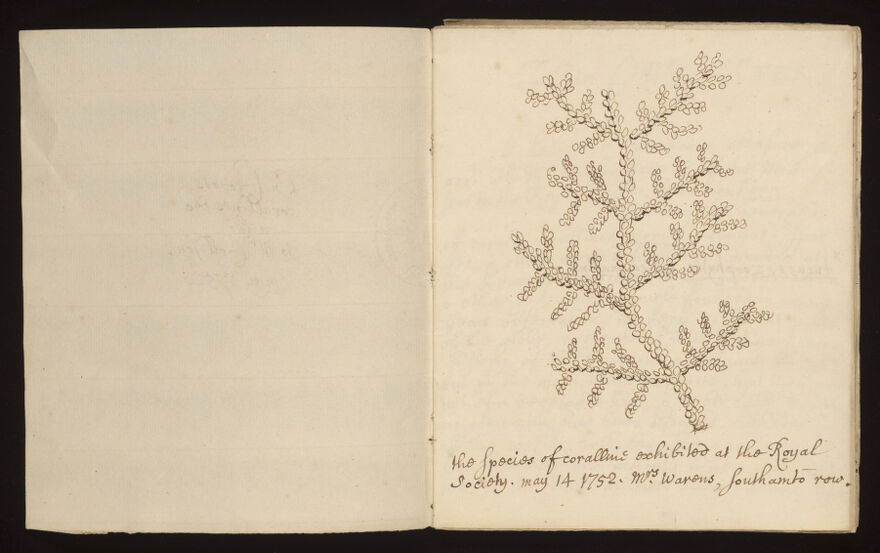 the species of coralline exhibited at the Royal
Society. may 14 1752. Mrs. Warens, Southamto row.